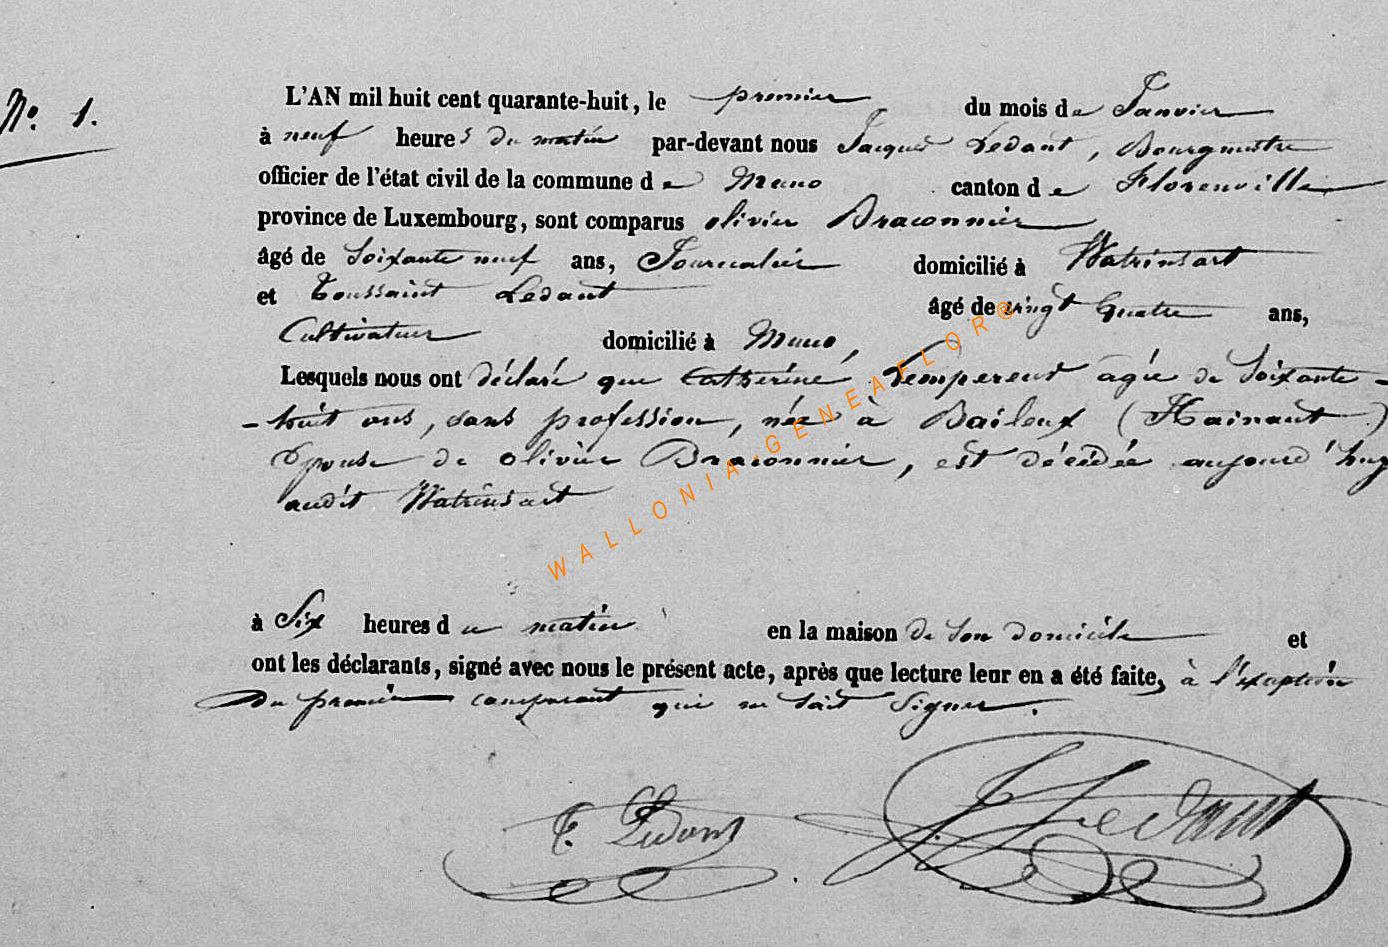 No. 1.
L'AN mil huit cent quarante-huit, le premier du mois de Janvier
à neuf heures du matin par-devant nous Jacques Ledant, Bourgmestre
officier de l'état civil de la commune de Muno canton de Florenville
province de Luxembourg, sont comparus olivier Braconnier
âgé de Soixante neuf ans, Journalier domicilié à Watrinsart
et Toussaint Ledant âgé de vingt quatre ans,
Cultivateur domicilié à Muno,
Lesquels nous ont déclaré que Catherine Temperent agée de Soixante-
-huit ans, sans profession, née à Baileux (Hainaut)
Epouse de olivier Braconnier, est décédée aujourd'huy
audit Watrinsart
à Six heures du matin en la maison de son domicile et
ont les déclarants, signé avec nous le présent acte, après que lecture leur en a été faite, à l'exception
du premier comparant qui ne sait Signer.
T. Ledant J. Ledant
WALLONIA-GENEAFLOR@